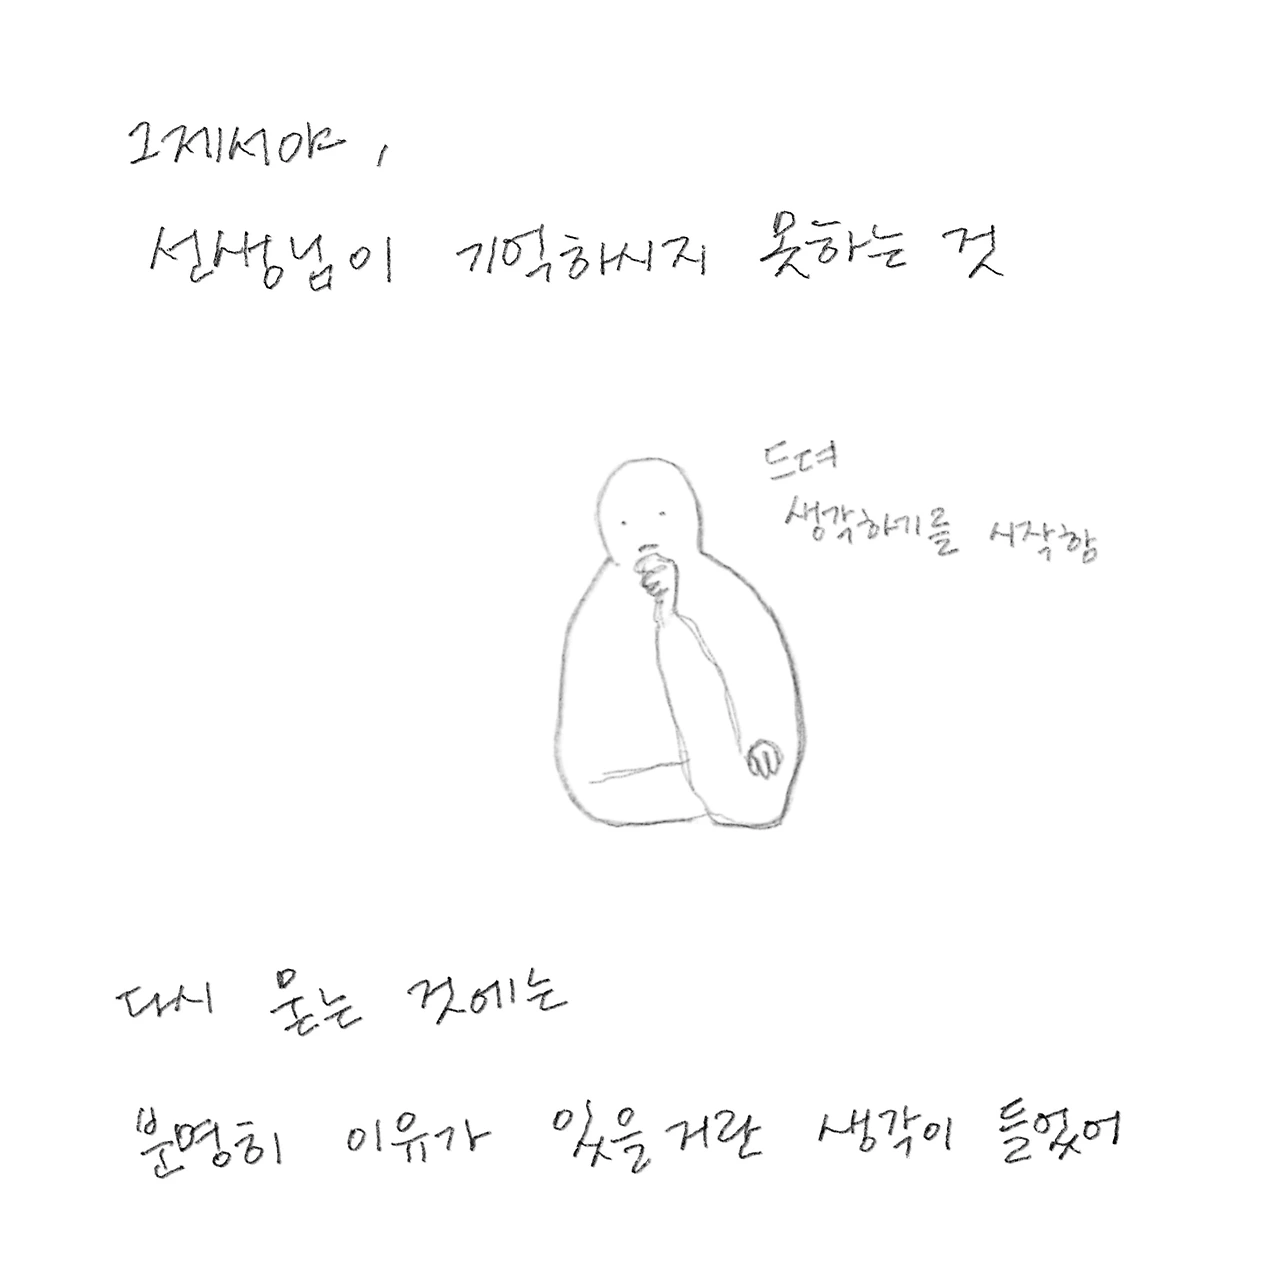 그제서야,
선생님이 기억하시지 못하는 것
드뎌
생각하기를 시작함
다시 묻는 것에는
분명히 이유가 있을거란 생각이 들었어